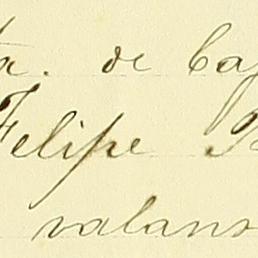 ta. de Cag
Felipe B
valans